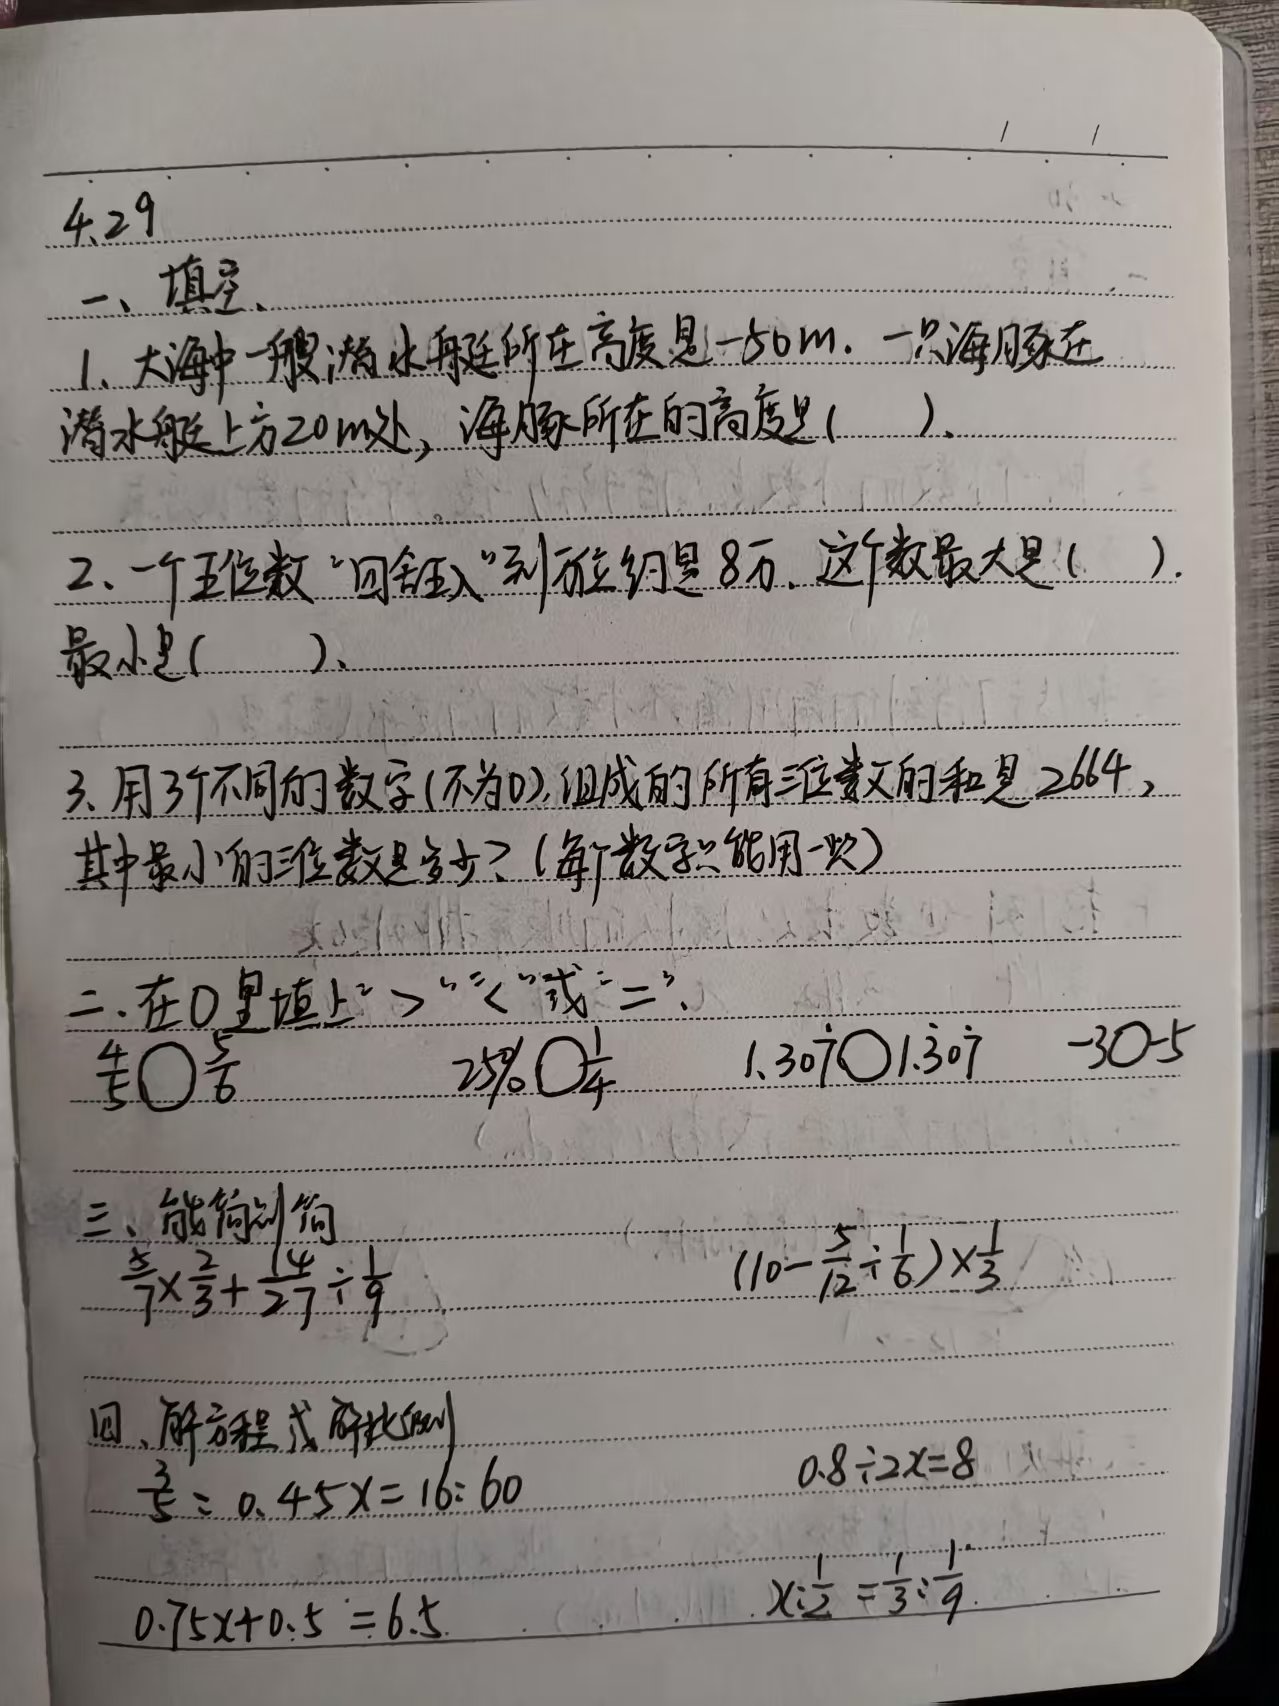 4.29
一、填空.
1、大海中一艘潜水艇所在高度是-50m. 一只海豚在
潜水艇上方20m处,海豚所在的高度是(  ).
2、一个五位数“四舍五入”到万位约是8万.这个数最大是(  ).
最小是(  ).
3、用3个不同的数字(不为0),组成的所有三位数的和是2664,
其中最小的三位数是多少?(每个数字只能用一次)
二.在○里填上“>”“<”或“=”.
4/5○5/6 25%○1/4 1.307̇○1.3̇07̇ -3○-5
三、能简则简
5/7×2/3+14/27÷1/9 (10-5/12÷1/6)×1/3
四、解方程或解比例
3/5:0.45x=16:60 0.8÷2x=8
0.75x+0.5=6.5 x:1/2=1/3:1/9